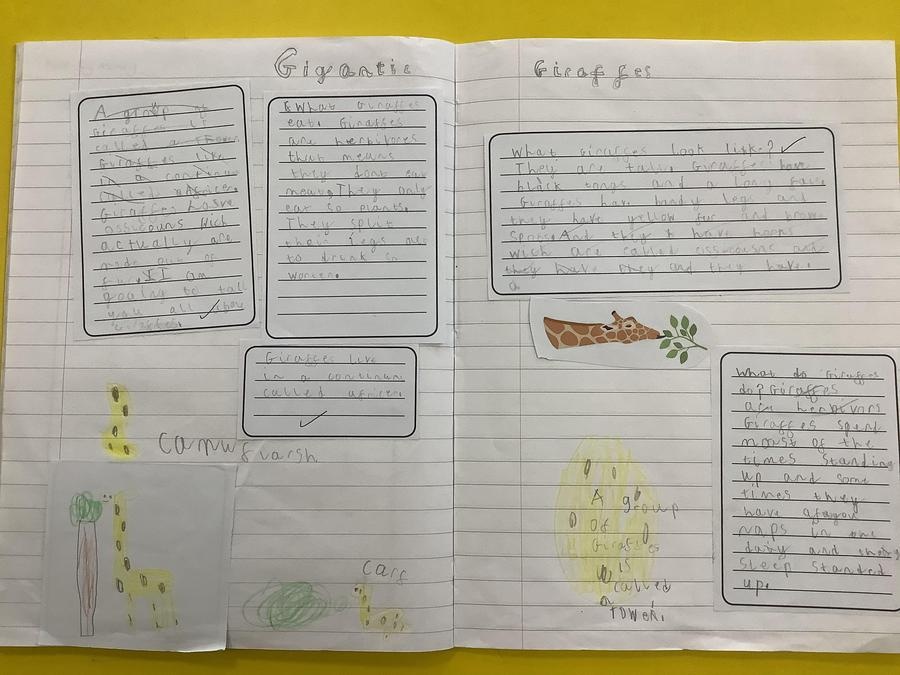 Gigantic Giraffes
A group of
Giraffes is
called a
Giraffes live
in a continu
called africe.
Giraffes have
ossicouns Wich
actually are
made out of
fur. II am
goaing to tall
you all
giraffes.
What Giraffes
eat. Giraffes
are herbivores
that means
they dont eat
meat, They only
eat so plants.
They split
their legs
to drink
Giraffes live
in a continunt
called africe.
camuflarsh
carf
What giraffes look like?
They are tall. Giraffes have
black tongs and a long
Giraffes have bendy legs and
they have yellow fur and brown
And they have hoovs
wich are called
they have they and they have.
a
A group
of
Giraffes
is
called
a
Tower.
What do Giraffes
do? Giraffes
are herbivors
Giraffes spend
most of the
times standing
up and some
times they
have
naps in one
daiy and they
Sleep Standed
up.